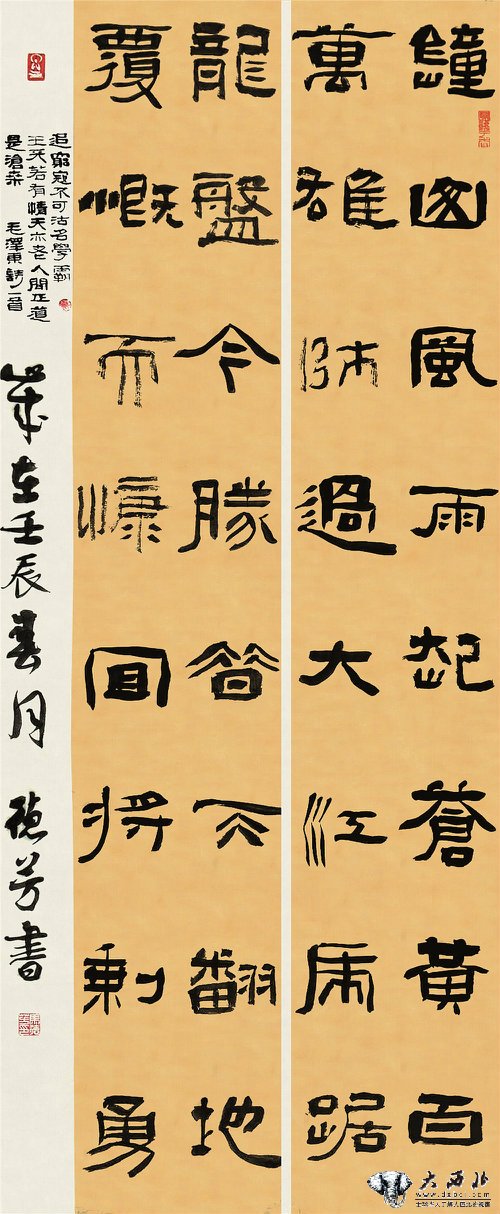 鐘山風雨起蒼黃百
萬雄師過大江虎踞
龍盤今勝昔天翻地
覆慨而慷宜將剩勇
追窮寇不可沽名學霸
王天若有情天亦老人間正道
是滄桑 毛澤東詩一首
歲在壬辰春月 德芳書
大西北